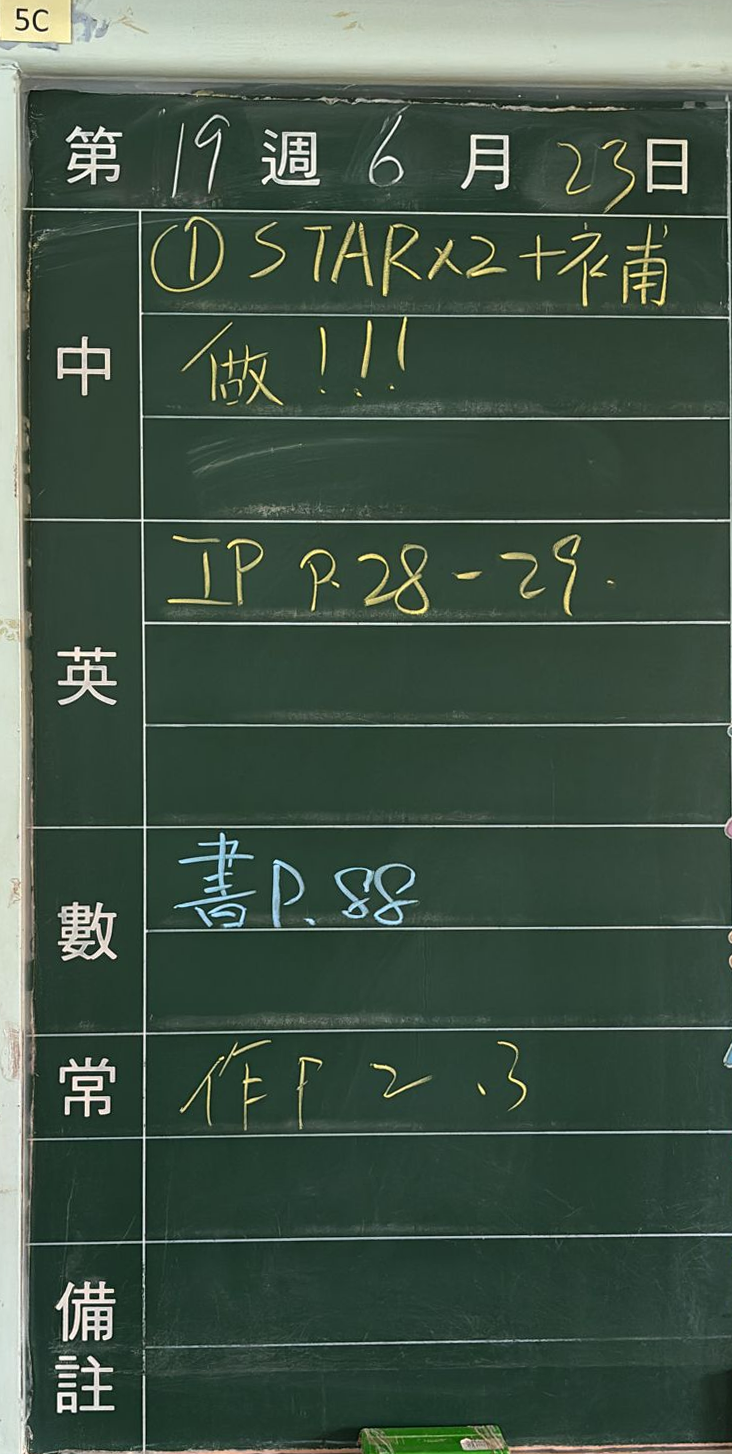 5C
第 19 週 6 月 23 日
中
① STAR×2+補
做!!!
英
IP P.28-29.
數
書P.88
常
作P 2、3
備註